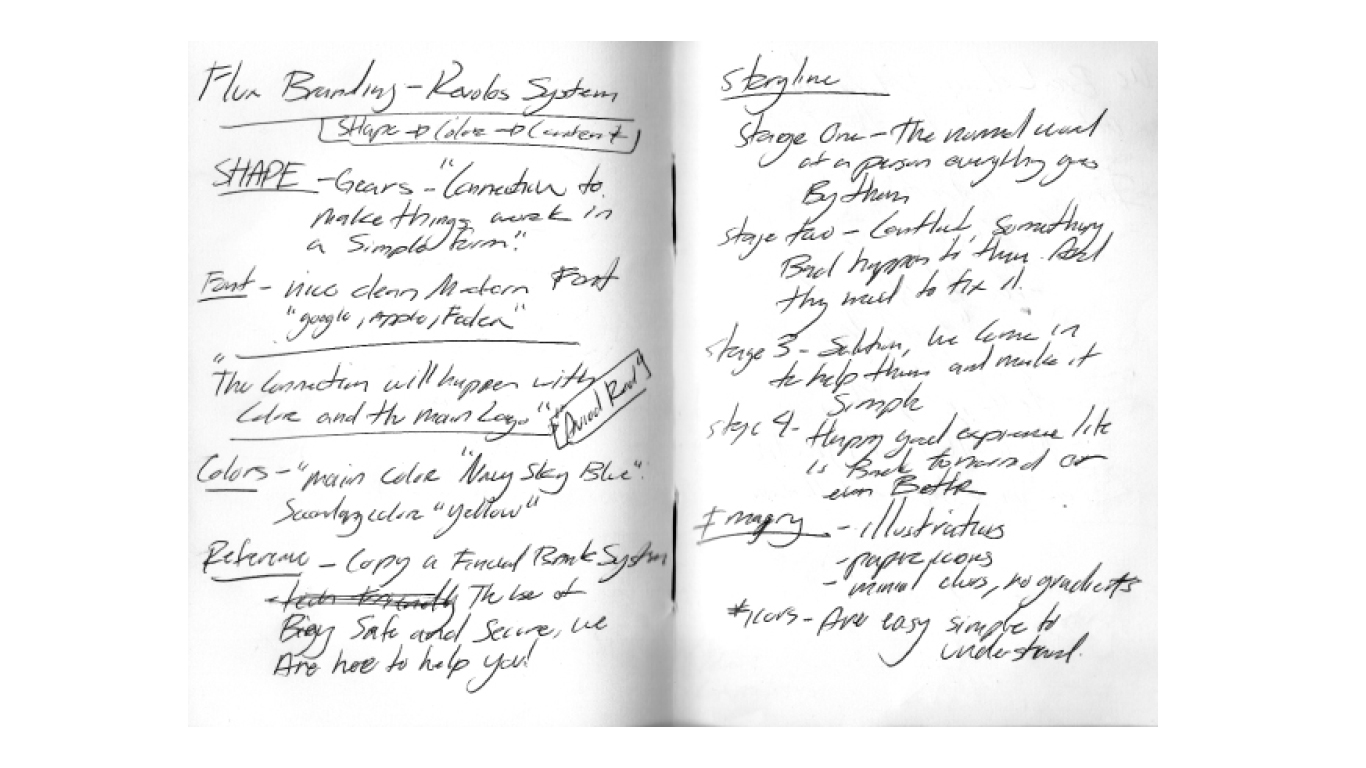 Flux Branding - Kevolos System
SHape → Color → Content
SHAPE - Gears - "Connection to
make things work in
a Simple form."
Font - nice clean Modern Font
"google, Apple, Fedex"
"The Connection will happen with
Color and the main Logo"
"Avoid Red"
Colors - "main color "Navy Sky Blue".
Secondary color "yellow"
Reference - Copy a Bank System
The use of
Being Safe and Secure, we
Are here to help you!
Storyline
Stage One - The normal
of a person everything goes
By them
stage two - Conflict, Something
Bad happens to them. And
they need to fix it.
stage 3 - Solution, we come in
to help them and make it
Simple
stage 4 - Happy good experience life
is Back to normal or
even Better
Imagry - illustrations
- paper icons
- minimal colors, no gradients
*icons - Are easy simple to
understand.